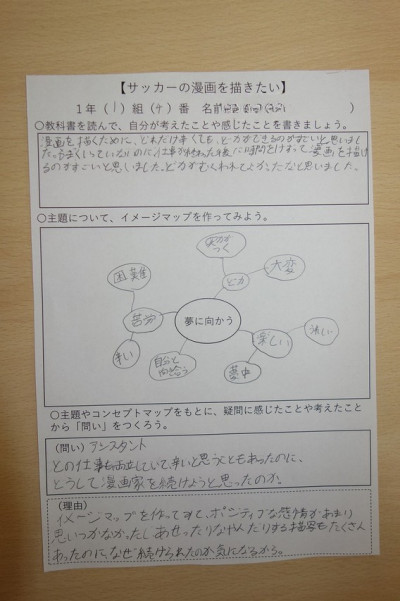 【サッカーの漫画を描きたい】
1年（1）組（4）番　名前　　　）
○教科書を読んで、自分が考えたことや感じたことを書きましょう。
漫画を描くために、どれだけ辛くても、努力ができるのがすごいと思いまし
た。うまくいっていないのに仕事が終わった後に時間をけずって漫画を描け
るのがすごいと思いました。努力がむくわれてよかったなと思いました。
○主題について、イメージマップを作ってみよう。
実力が
つく
困難
努力
大変
苦労
夢に向かう
楽しい
嬉しい
辛い
自分と
向き合う
夢中
○主題やコンセプトマップをもとに、疑問に感じたことや考えたこと
から「問い」をつくろう。
（問い）アシスタント
との仕事も両立していて、辛いと思うこともあったのに、
どうして漫画家を続けようと思ったのか。
（理由）
イメージマップを作ってみて、ポジティブな感情があまり
思いつかなかったし、あせったりなやんだりする描写もたくさん
あったのに、なぜ続けられたのか気になるから。